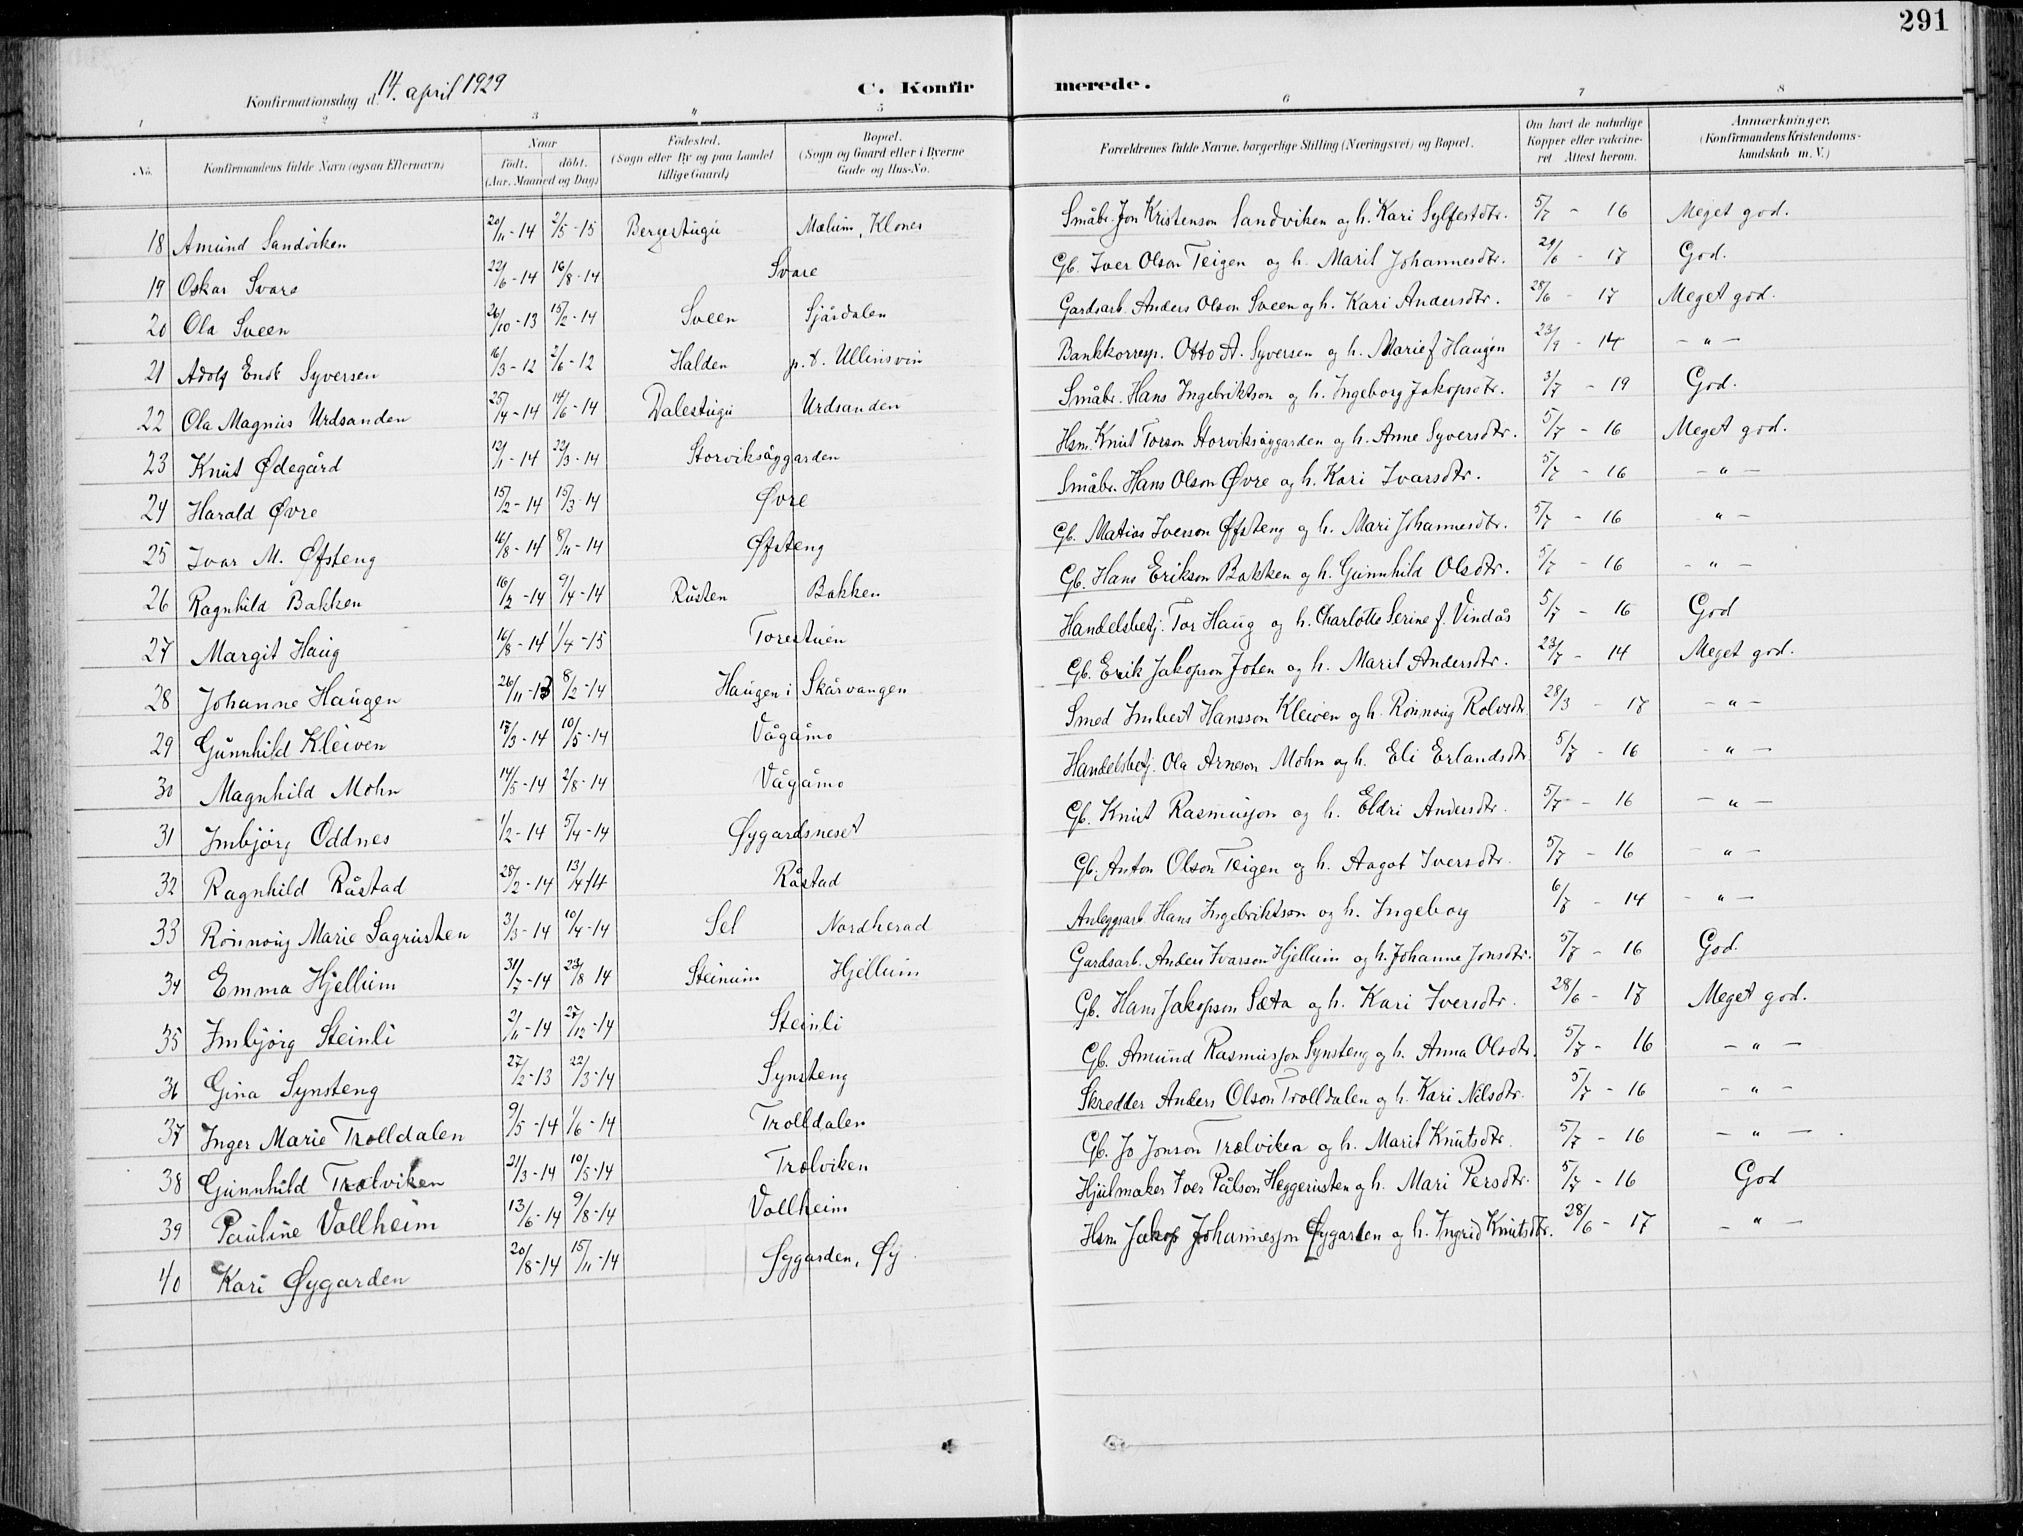 291
Konfirmationsdag d. 14. april 1929
C. Konfirmerede.
1 2 3 4 5 6 7 8
No. Konfirmandens fulde Navn (ogsaa Efternavn) Naar født. døbt. (Aar. Maaned og Dag) Fødested. (Sogn eller By og paa Landet tillige Gaard) Bopæl. (Sogn og Gaard eller i Byerne Gade og Hus-No. Forældrenes fulde Navne, borgerlige Stilling (Næringsvei) og Bopæl. Om havt de naturlige Kopper eller vakcineret Attest herom. Anmærkninger. (Konfirmandens Kristendomskundskab m. V.)
18 Amund Sandviken 20/11-14 2/5-15 Bergestugu Mælum, Klones Småbr. Jon Kristenson Sandviken og h. Kari Sylfestdtr. 5/7 - 16 Meget god.
19 Oskar Svare 22/6-14 16/8-14 Svare Gb. Iver Olson Teigen og h. Marit Johannesdtr. 29/6 - 17 God.
20 Ola Sveen 26/10-13 15/2-14 Sveen Sjårdalen Gardsarb. Anders Olson Sveen og h. Kari Andersdtr. 28/6 - 17 Meget god.
21 Adolf Syversen 16/3-12 2/6-12 Halden p.t. Ullinsvin Bankkorresp. Otto A. Syversen og h. Marie f. Haugen 23/9 - 14 - " -
22 Ola Magnus Urdsanden 25/4-14 14/6-14 Dalestugu Urdsanden Småbr. Hans Ingebriktson og h. Ingeborg Jakopsdtr. 3/7 - 19 God.
23 Knut Ødegård 12/1-14 22/3-14 Storviksøygarden Hsm. Knut Torson Storviksøygarden og h. Anne Syversdtr. 5/7 - 16 Meget god.
24 Harald Øvre 15/2-14 15/3-14 Øvre Småbr. Hans Olson Øvre og h. Kari Ivarsdtr. 5/7 - 16 - " -
25 Ivar M. Øfsteng 16/8-14 8/11-14 Øfsteng Gb. Matias Iverson Øfsteng og h. Mari Johannesdtr. 5/7 - 16 " -
26 Ragnhild Bakken 16/2-14 9/4-14 Rusten Bakken Gb. Hans Erikson Bakken og h. Gunnhild Olsdtr. 5/7 - 16 - " -
27 Margit Haug 16/8-14 1/4-15 Torestuen Handelsbetj. Tor Haug og h. Charlotte Serine f. Vindås 5/7 - 16 God
28 Johanne Haugen 26/11-13 8/2-14 Haugen i Skårvangen Gb. Erik Jakopson Joten og h. Marit Andersdtr. 23/7 - 14 Meget god.
29 Gunnhild Kleiven 17/3-14 10/5-14 Vågåmo Smed Imbert Hansson Kleiven og h. Rønnoug Rolvsdtr. 28/3 - 17 - " -
30 Magnhild Mohn 14/5-14 2/8-14 Vågåmo Handelsbetj. Ola Arneson Mohn og h. Eli Erlandsdtr. 5/7 - 16 - " -
31 Imbjørg Oddnes 1/2-14 5/4-14 Øygardsneset Gb. Knut Rasmusson og h. Eldri Andersdtr. 5/7 - 16 - " -
32 Ragnhild Råstad 28/2-14 13/4-14 Råstad Gb. Anton Olson Teigen og h. Aagot Iversdtr. 5/7 - 16 - " -
33 Rønnoug Marie Sagrusten 3/3-14 10/4-14 Sel Nordherad Anleggsarb. Hans Ingebriktson og h. Ingeborg 6/8 - 14 - " -
34 Emma Hjellum 31/7-14 23/8 14 Steinum Hjellum Gardsarb. Anders Ivarson Hjellum og h. Johanne Jonsdtr. 5/7 - 16 God.
35 Imbjørg Steinli 2/11-14 27/12-14 Steinli Gb. Hans Jakopson Sæta og h. Kari Iversdtr. 28/6 - 17 Meget god.
36 Gina Synsteng 27/2-13 22/3-14 Synsteng Gb. Amund Rasmusson Synsteng og h. Anna Olsdtr. 5/7 - 16 - " -
37 Inger Marie Trolldalen 9/5-14 1/6-14 Trolldalen Skredder Anders Olson Trolldalen og h. Kari Nilsdtr. 5/7 - 16 - " -
38 Gunnhild Trælviken 21/3-14 10/5-14 Trælviken Gb. Jo Jonson Trælviken og h. Marit Knutsdtr. 5/7 - 16 - " -
39 Pauline Vollheim 13/6-14 9/8-14 Vollheim Hjulmaker Iver Pålson Heggerusten og h. Mari Persdtr. 5/7 - 16 God
40 Kari Øygarden 20/8-14 15/11-14 Øygarden, Øy. Hsm. Jakop Johannesson Øygarden og h. Ingrid Knutsdtr. 28/6 - 17 - " -